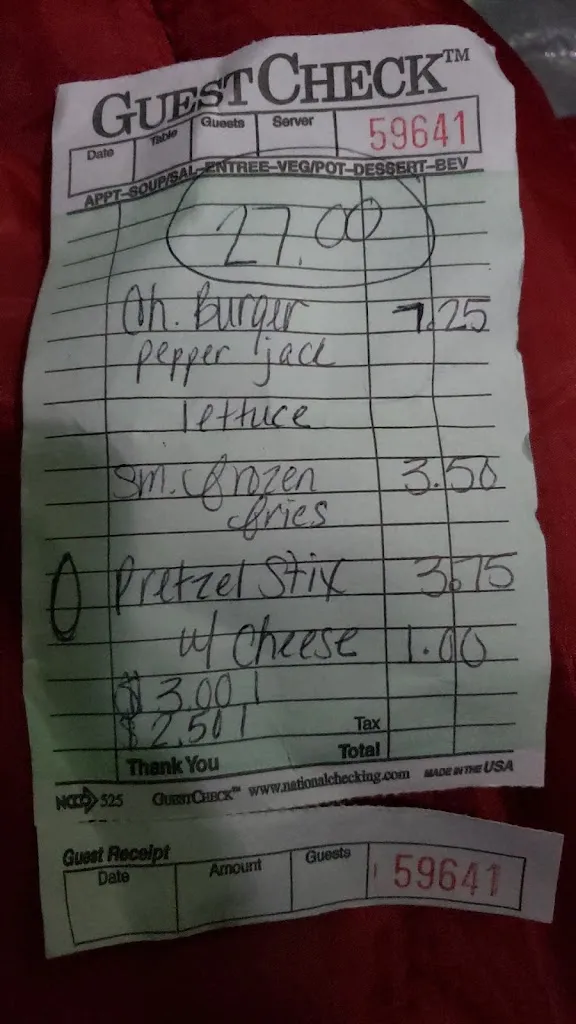 GUEST CHECK™
Date Table Guests Server 59641
APPT-SOUP/SAL-ENTREE-VEG/POT-DESSERT-BEV
27.00
Ch. Burger 7.25
pepper jack
lettuce
Sm. frozen 3.50
fries
Pretzel Stix 3.75
w/ Cheese 1.00
$ 3.00 |
$ 2.50 | Tax
Thank You Total
NCCO 525 GUESTCHECK™ www.nationalchecking.com MADE IN THE USA
Guest Receipt
Date Amount Guests 59641